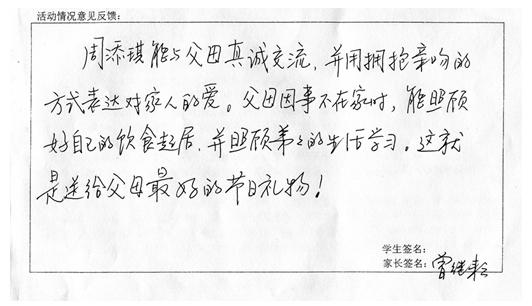 活动情况意见反馈:
周添琪能与父母真诚交流,并用拥抱亲吻的
方式表达对家人的爱。父母因事不在家时,能照顾
好自己的饮食起居,并照顾弟弟的生活学习。这就
是送给父母最好的节日礼物!
学生签名:
家长签名:曾继